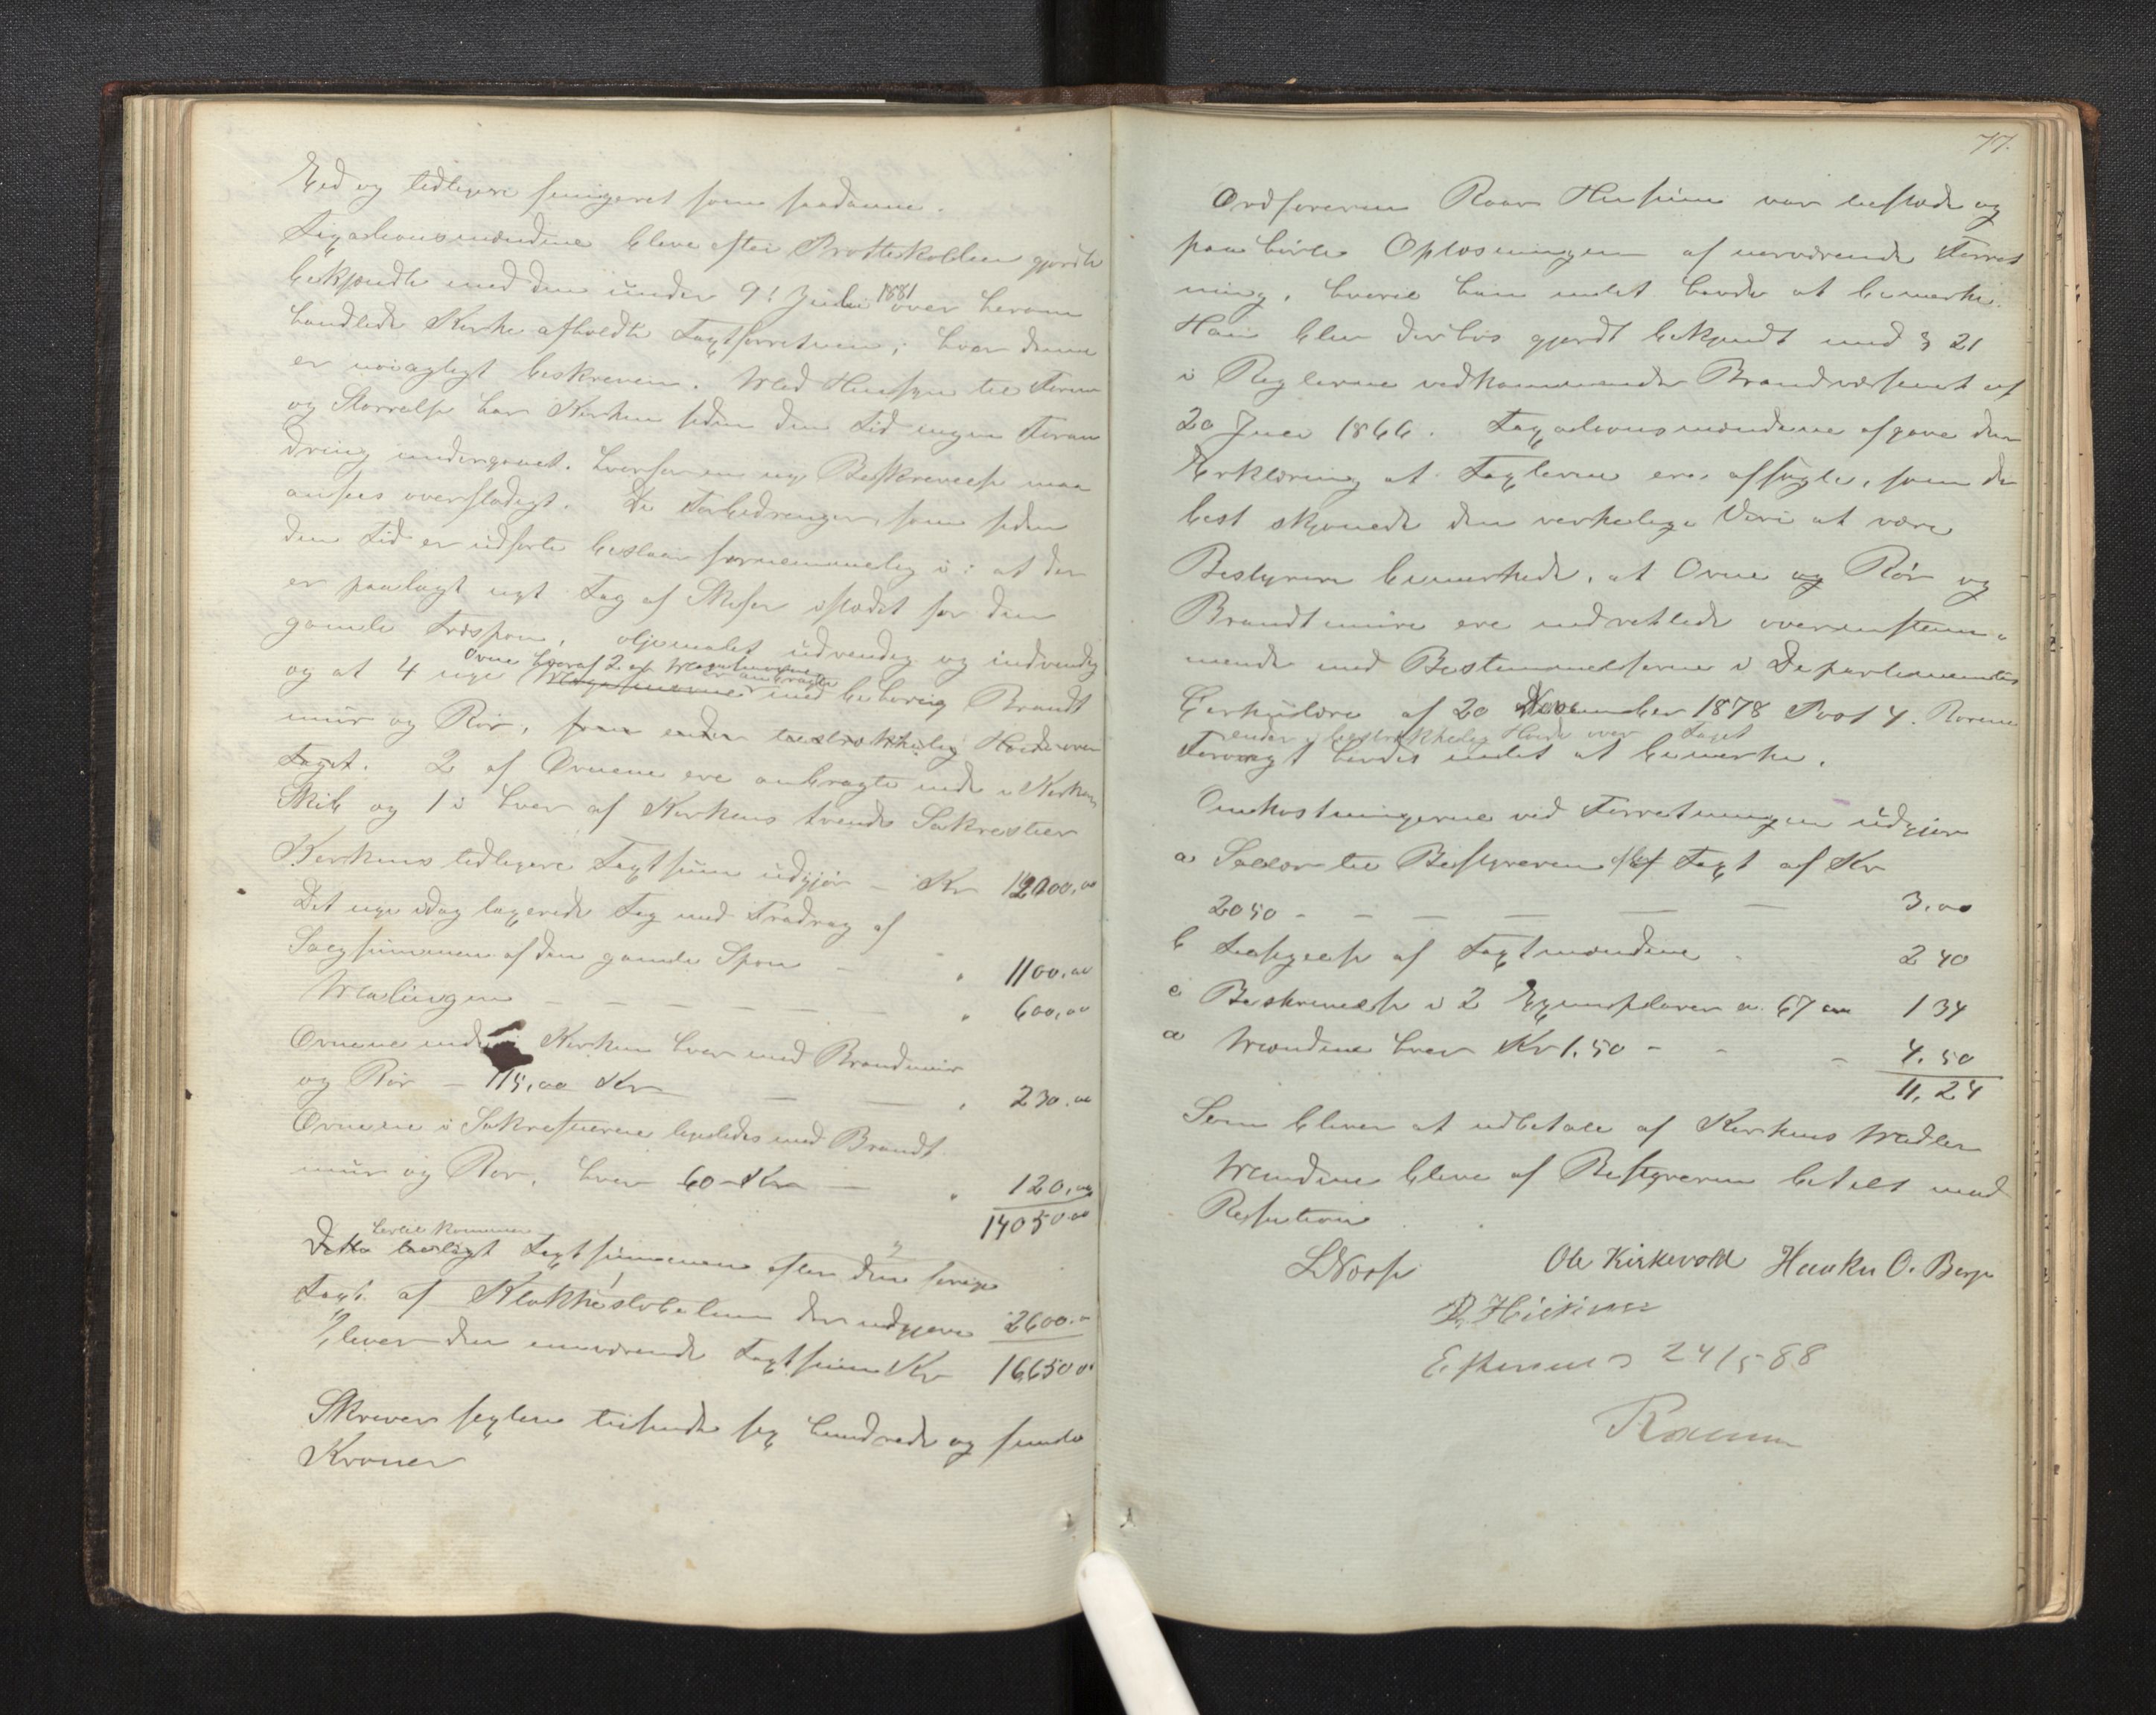 Eed og tidligere fungeret som saadanne.
Taxationsmændene bleve efter Protokollen gjordte
bekjendte med den under 9de Juli 1881 over herom
handlede Kirke afholdte Taxtforretnin; hvor denne
er nøiagtigt beskreven. Med Hensyn til Form
og Størrelse har Kirken siden den Tid ingen Foran
dring undergaaet. hvorfor en ny Beskrivelse maa
ansees overflødigt. De Forbedringer, som siden
den Tid er udførte bestaar fornemmelig i: at der
er paalagt nyt Tag af Skifer istedet for den
gamle Træspon, oljemalet udvendig og indvendig
Ovne hvoraf 2 er Magasinovne
og at 4 nye Magasinovne er anbragte med behørig Brandt
mur og Rør, som ender tilstrækkelig Høide over
Taget. 2 af Ovnene ere anbragte inde i Kirkens
Skib og 1 i hver af Kirkens tvende Sakrestier
Kirkens tidligere Taxtsum udgjør – Kr 12000,00
Det nye idag taxerede Tag med Fradrag af
Salgsummen af den gamle Spon – " 1100,00
Malingen – – – – – " 600,00
Ovnene inde i Kirken hver med Brandmur
og Rør – 115,00 Kr – – " 230.00
Ovnene i Sakrestierne ligeledes med Brandt
mur og Rør, hver 60 Kr – " 120,00
14050.00
hertil kommer
Dette tillagt Taxtsummen efter den forrige
Taxt af Klokkestøbelen der udgjøre 2600.–
bliver den nuværende Taxtsum Kr 16650 00
Skriver sexten tusinde sex hundrede og femti
Kroner
77.
Ordføreren Roar Husum var tilstede og
paahørte Oplæsningen af nærværende Forret
ning, hvortil han intet havde at bemærke.
Han blev derhos gjordt bekjendt med § 21
i Reglerne vedkommende Brandvæsenet af
20 Juni 1866. Taxationsmændene afgave den
Erklæring at Taxterne ere afsagte, som de
best skjønnede den verkelige Værdi at være
Bestyreren bemærkede, at Ovne og Rør og
Brandtmure ere indrettede overensstem-
mende med Bestemmelserne i Departementets
Cirkulære af 20 November 1878 Post 4. Rørene
ender i tilstrækkelig Høide over Taget
Forøvrigt havdes intet at bemærke.
Omkostningerne ved Forretningen udgjør
a Salær til Bestyreren af Taxt af Kr
2050 – – – – – – 3.00
b Tilsigelse af Taxtmændene " 2 40
c Beskrivelse i 2 Exemplarer a 67 øre 1 34
d Mændene hver Kr 1.50 – – – 4.50
11,24
Som bliver at udbetale af Kirkens Midler
Mændene bleve af Bestyreren betalt med
Resution
Ole Kirkevold Haaken O. Berge
R. Husum
24/5 88